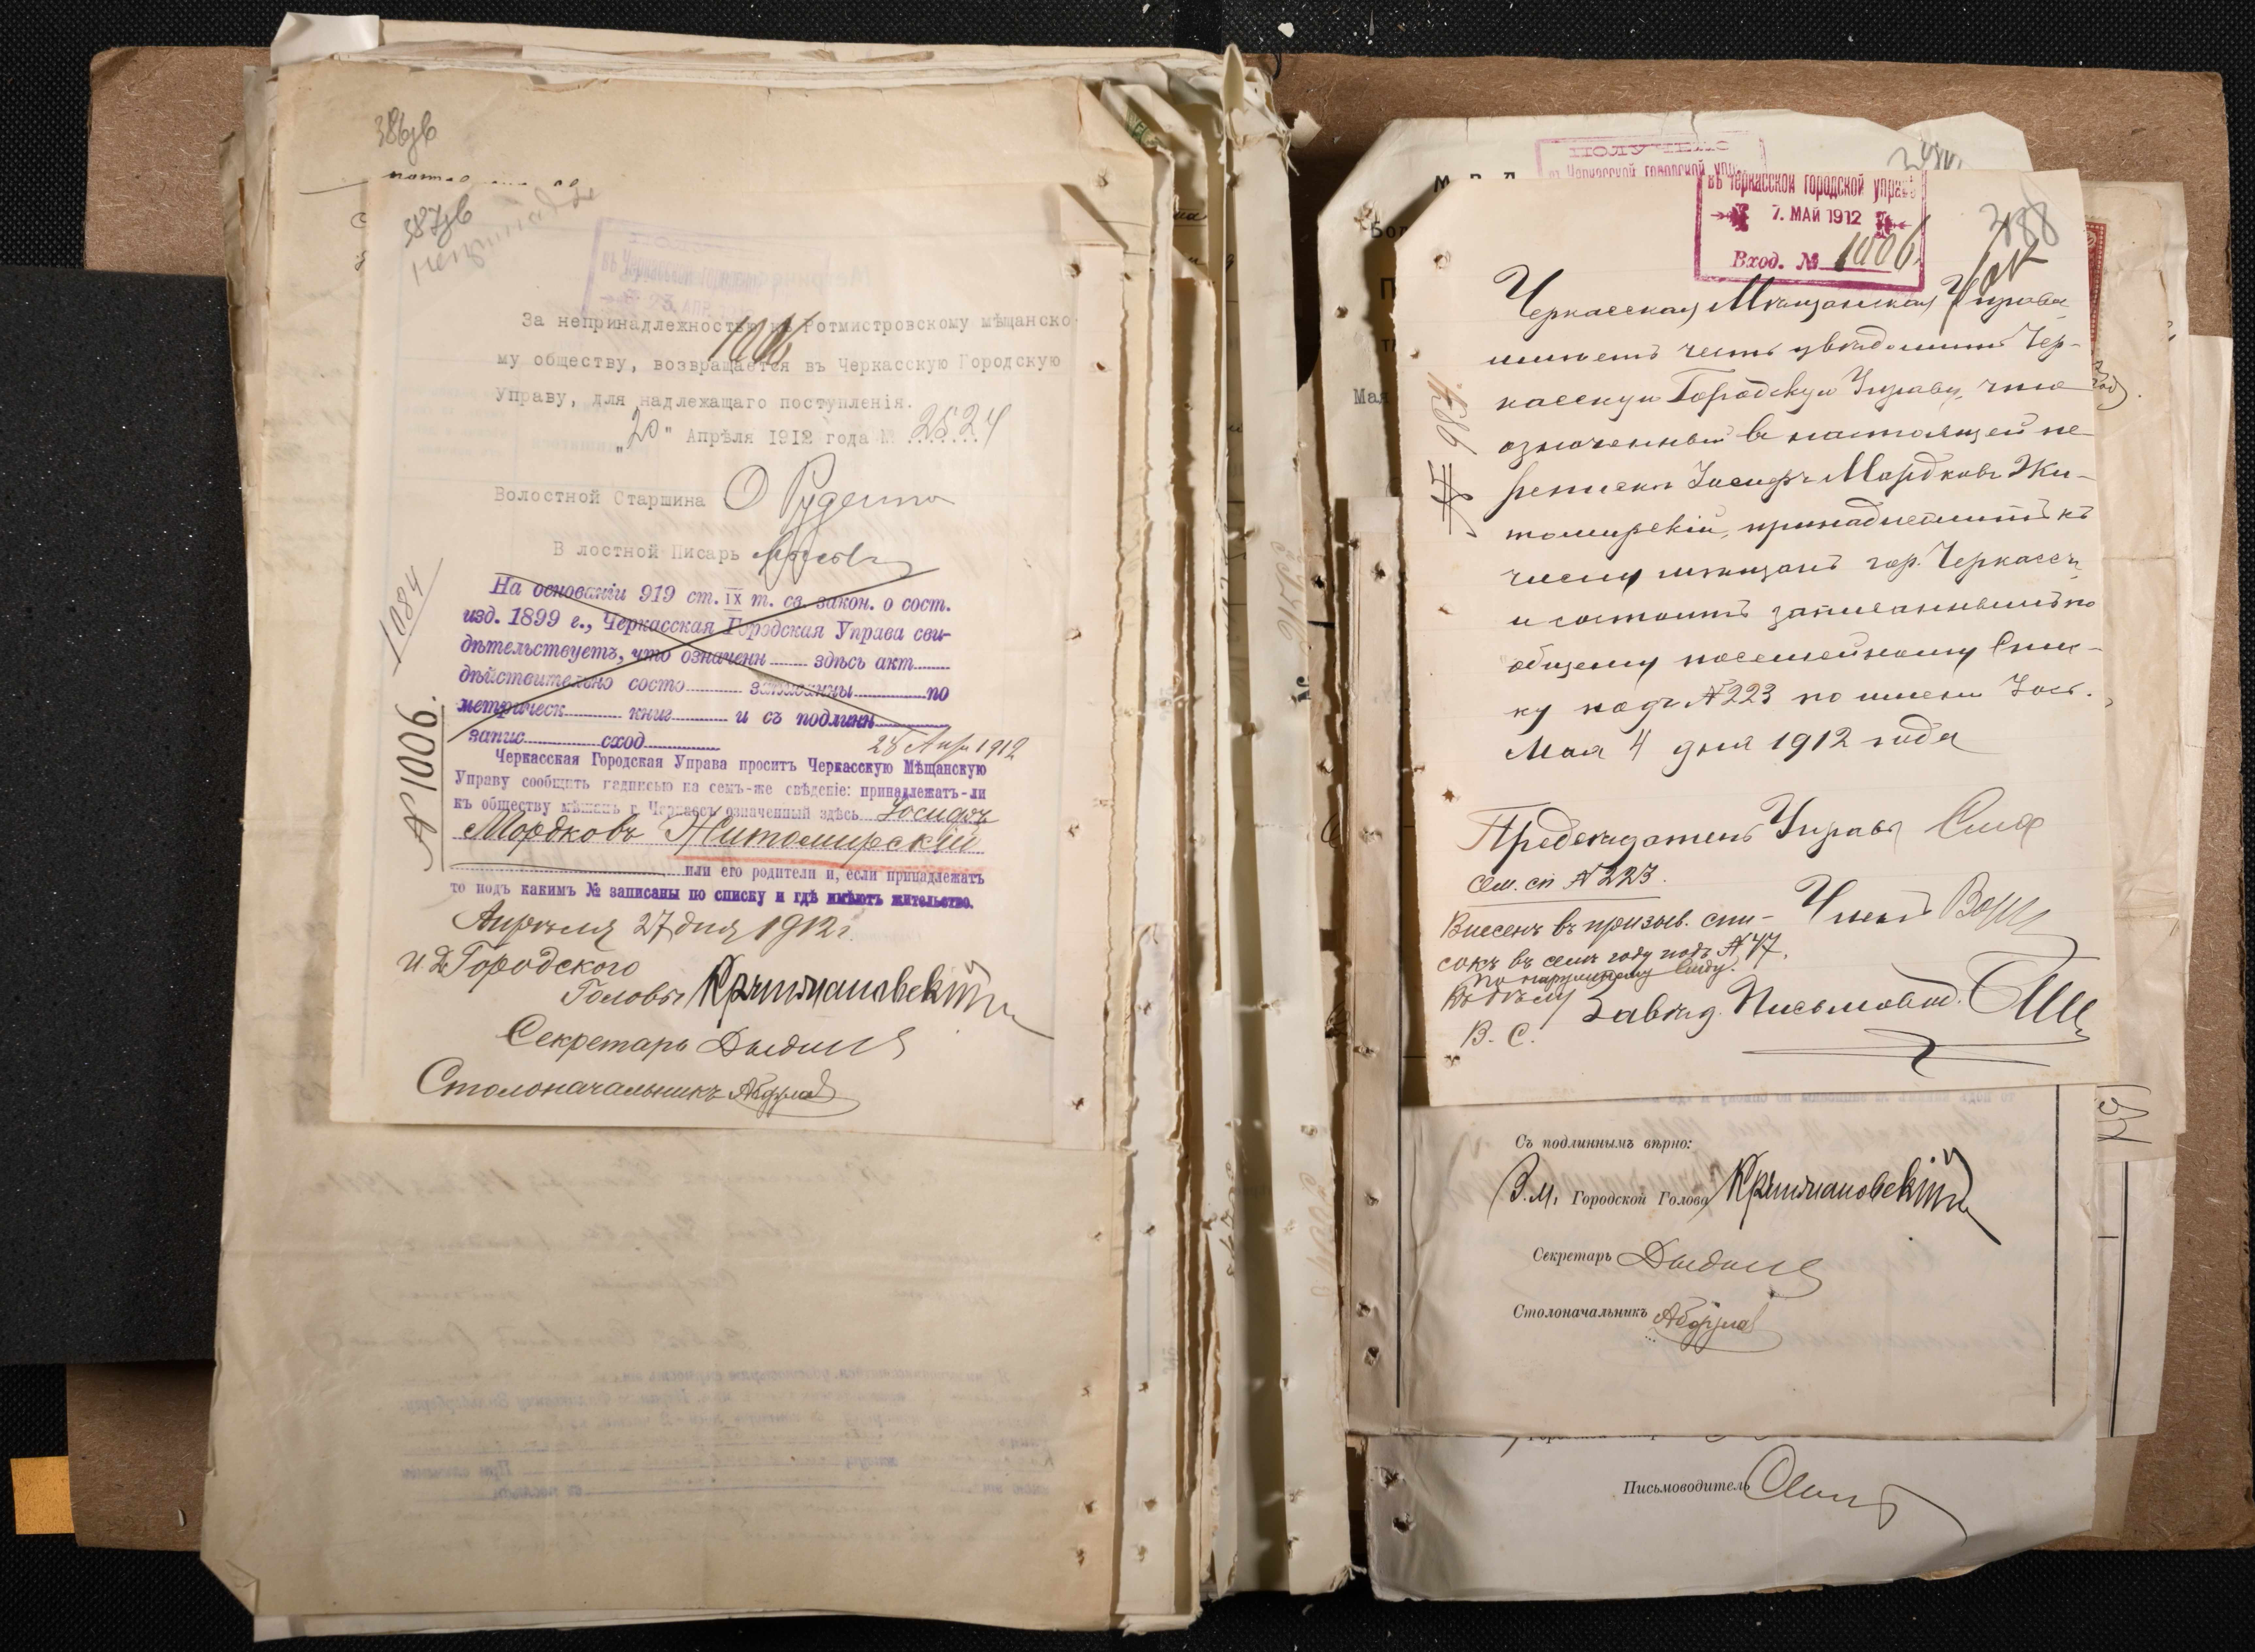 386 зв
387 зв
За непринадлежностью къ Ротмистровскому мѣщанско-
му обществу, возвращается въ Черкасскую Городскую
Управу, для надлежащаго поступленія.
"20" Апрѣля 1912 года № 2524
Волостной Старшина О Руденко
В лостной Писарь
1084
На основаніи 919 ст. IX т. св. закон. о сост.
изд. 1899 г., Черкасская Городская Управа сви-
дѣтельствуетъ, что означенн здѣсь акт
дѣйствительно состо записанны по
метрическ книг и съ подлинн
запис сход
28 Апр 1912
№ 1006.
Черкасская Городская Управа проситъ Черкасскую Мѣщанскую
Управу сообщить надписью на семъ-же свѣденіе: принадлежатъ-ли
къ обществу мѣщанъ г. Черкассъ означенный здѣсь Іосифъ
Мордковъ Житомирскій
или его родители и, если принадлежатъ
то подъ какимъ № записаны по списку и гдѣ имѣютъ жительство.
Апрѣля 27 дня 1912 г.
И. Д. Городского
Головы Крыжановскій
Секретарь
Столоначальникъ
ПОЛУЧЕНО
въ Черкасской городской упр
въ Черкасской городской управѣ
7. МАЙ 1912
Вход. № 1006
388
№ 983
Черкасская Мѣщанская Управа
имѣетъ честь увѣдомить Чер-
касскую Городскую Управу, что
означенный в настоящей пе-
репискѣ Іосифъ Мордковъ Жи-
томирскій, принадлежитъ къ
числу мѣщанъ гор. Черкассъ
и состоитъ записаннымъ по
общему посемейному спис-
ку подъ № 223 по имени Іос.
Мая 4 дня 1912 года
Предсѣдатель Управы
Сем. сп № 223.
Членъ
Внесенъ въ призыв. спи-
сокъ въ семъ году подъ № 47.
по наружному виду.
Къ дѣлу
В. С.
Завѣд. Письмовод.
Мая
Съ подлиннымъ вѣрно:
З. м. Городской Голова Крыжановскій
Секретарь
Столоначальникъ
Письмоводитель